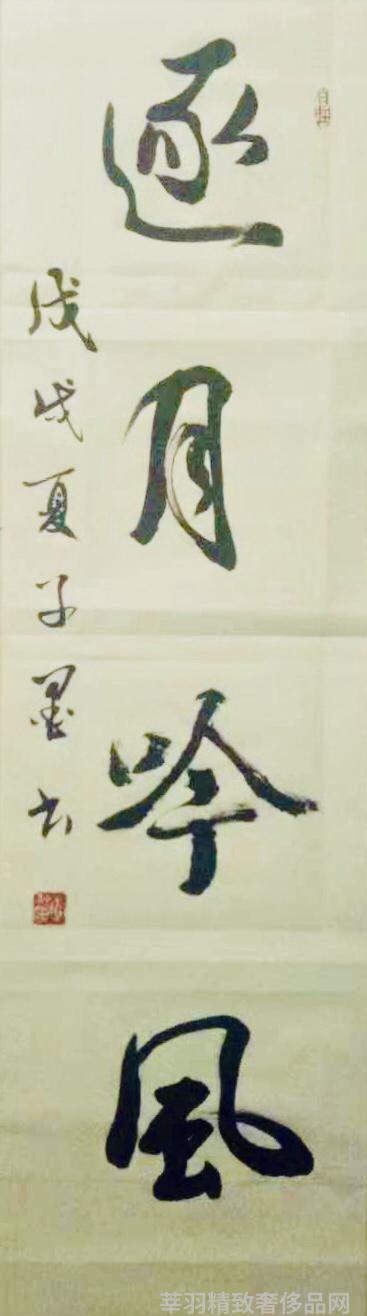 逐月吟風
戊戌夏子墨书
莘羽精致奢侈品网